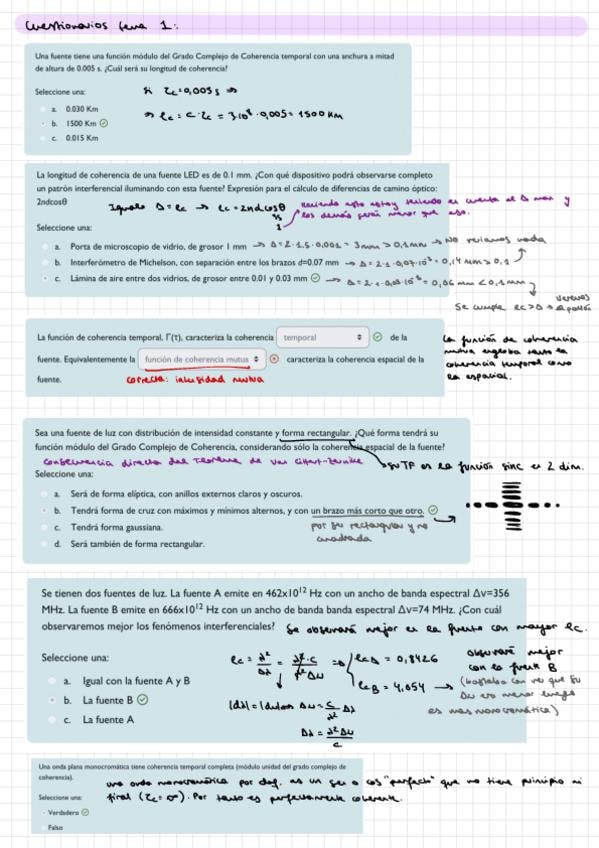 Cuestionarios tema 1:
Una fuente tiene una función módulo del Grado Complejo de Coherencia temporal con una anchura a mitad
de altura de 0.005 s. ¿Cuál será su longitud de coherencia?
Seleccione una:
si τc=0,005 s ⇒
a. 0.030 Km
b. 1500 Km
⇒ lc = c·τc = 3·10⁸·0,005 = 1500 KM
c. 0.015 Km
La longitud de coherencia de una fuente LED es de 0.1 mm. ¿Con qué dispositivo podrá observarse completo
un patrón interferencial iluminando con esta fuente? Expresión para el cálculo de diferencias de camino óptico:
2ndcosθ
Igualo Δ = lc → lc = 2ndcosθ
1
Haciendo esto estoy teniendo en cuenta el Δ max y
los demás serán menor que eso.
Seleccione una:
a. Porta de microscopio de vidrio, de grosor 1 mm
→ Δ = 2·1.5·0,001 = 3mm > 0,1mm → No veríamos nada
b. Interferómetro de Michelson, con separación entre los brazos d=0.07 mm
→ Δ = 2·1·0,07·10⁻³ = 0,14 mm > 0,1
c. Lámina de aire entre dos vidrios, de grosor entre 0.01 y 0.03 mm
→ Δ = 2·1·0,03·10⁻³ = 0,06 mm < 0,1mm
Se cumple lc > Δ → veremos el patrón
La función de coherencia temporal, Γ(τ), caracteriza la coherencia temporal de la
fuente. Equivalentemente la función de coherencia mutua caracteriza la coherencia espacial de la
fuente.
correcta: intensidad mutua
La función de coherencia
mutua engloba tanto la
coherencia temporal como
la espacial.
Sea una fuente de luz con distribución de intensidad constante y forma rectangular. ¿Qué forma tendrá su
función módulo del Grado Complejo de Coherencia, considerando sólo la coherencia espacial de la fuente?
consecuencia directa del Teorema de Van Cittert-Zernike
su TF es la función sinc en 2 dim.
Seleccione una:
a. Será de forma elíptica, con anillos externos claros y oscuros.
b. Tendrá forma de cruz con máximos y mínimos alternos, y con un brazo más corto que otro.
c. Tendrá forma gaussiana.
por ser rectangular y no
cuadrada
d. Será también de forma rectangular.
Se tienen dos fuentes de luz. La fuente A emite en 462x10¹² Hz con un ancho de banda espectral Δν=356
MHz. La fuente B emite en 666x10¹² Hz con un ancho de banda banda espectral Δν=74 MHz. ¿Con cuál
observaremos mejor los fenómenos interferenciales?
Se observará mejor en la fuente con mayor lc.
Seleccione una:
lc = λ²/Δλ = λ²·c/λ²Δν ⇒ lcA = 0,8426
lcB = 4,054
observará mejor
con la fuente B
(bastaba con ver que su
Δν era menor luego
es más monocromática)
a. Igual con la fuente A y B
b. La fuente B
c. La fuente A
Δν = c/λ² Δλ
Δλ = λ²Δν/c
Una onda plana monocromática tiene coherencia temporal completa (módulo unidad del grado complejo de
coherencia).
una onda monocromática por def. es un sen o cos "perfecto" que no tiene principio ni
final (τc=∞). Por tanto es perfectamente coherente.
Seleccione una:
Verdadero
Falso